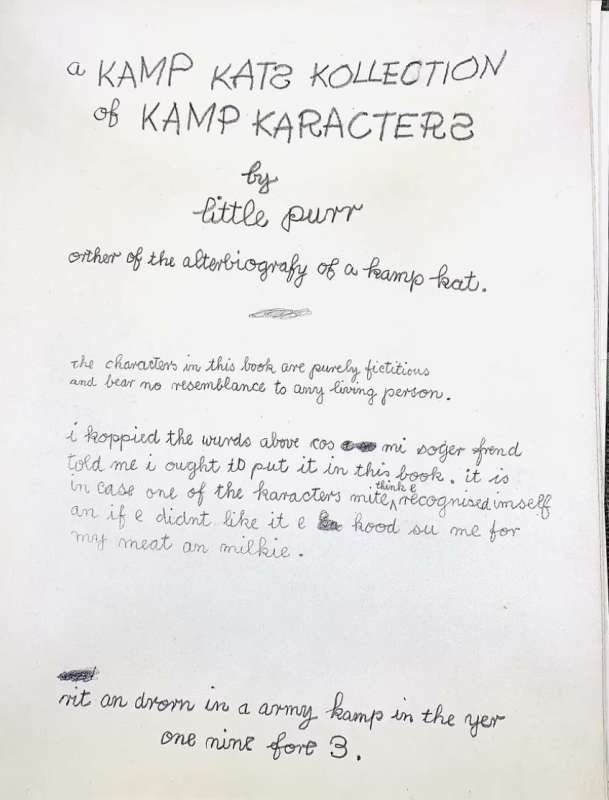 a KAMP KATS KOLLECTION
of KAMP KARACTERS
by
little purr
orther of the alterbiografy of a kamp kat.
the characters in this book are purely fictitious
and bear no resemblance to any living person.
i koppied the wurds above cos mi soger frend
told me i ought to put it in this book. it is
in case one of the karacters mite think e recognised imself
an if e didnt like it e kood su me for
my meat an milkie.
rit an drorn in a army kamp in the yer
one nine fore 3.